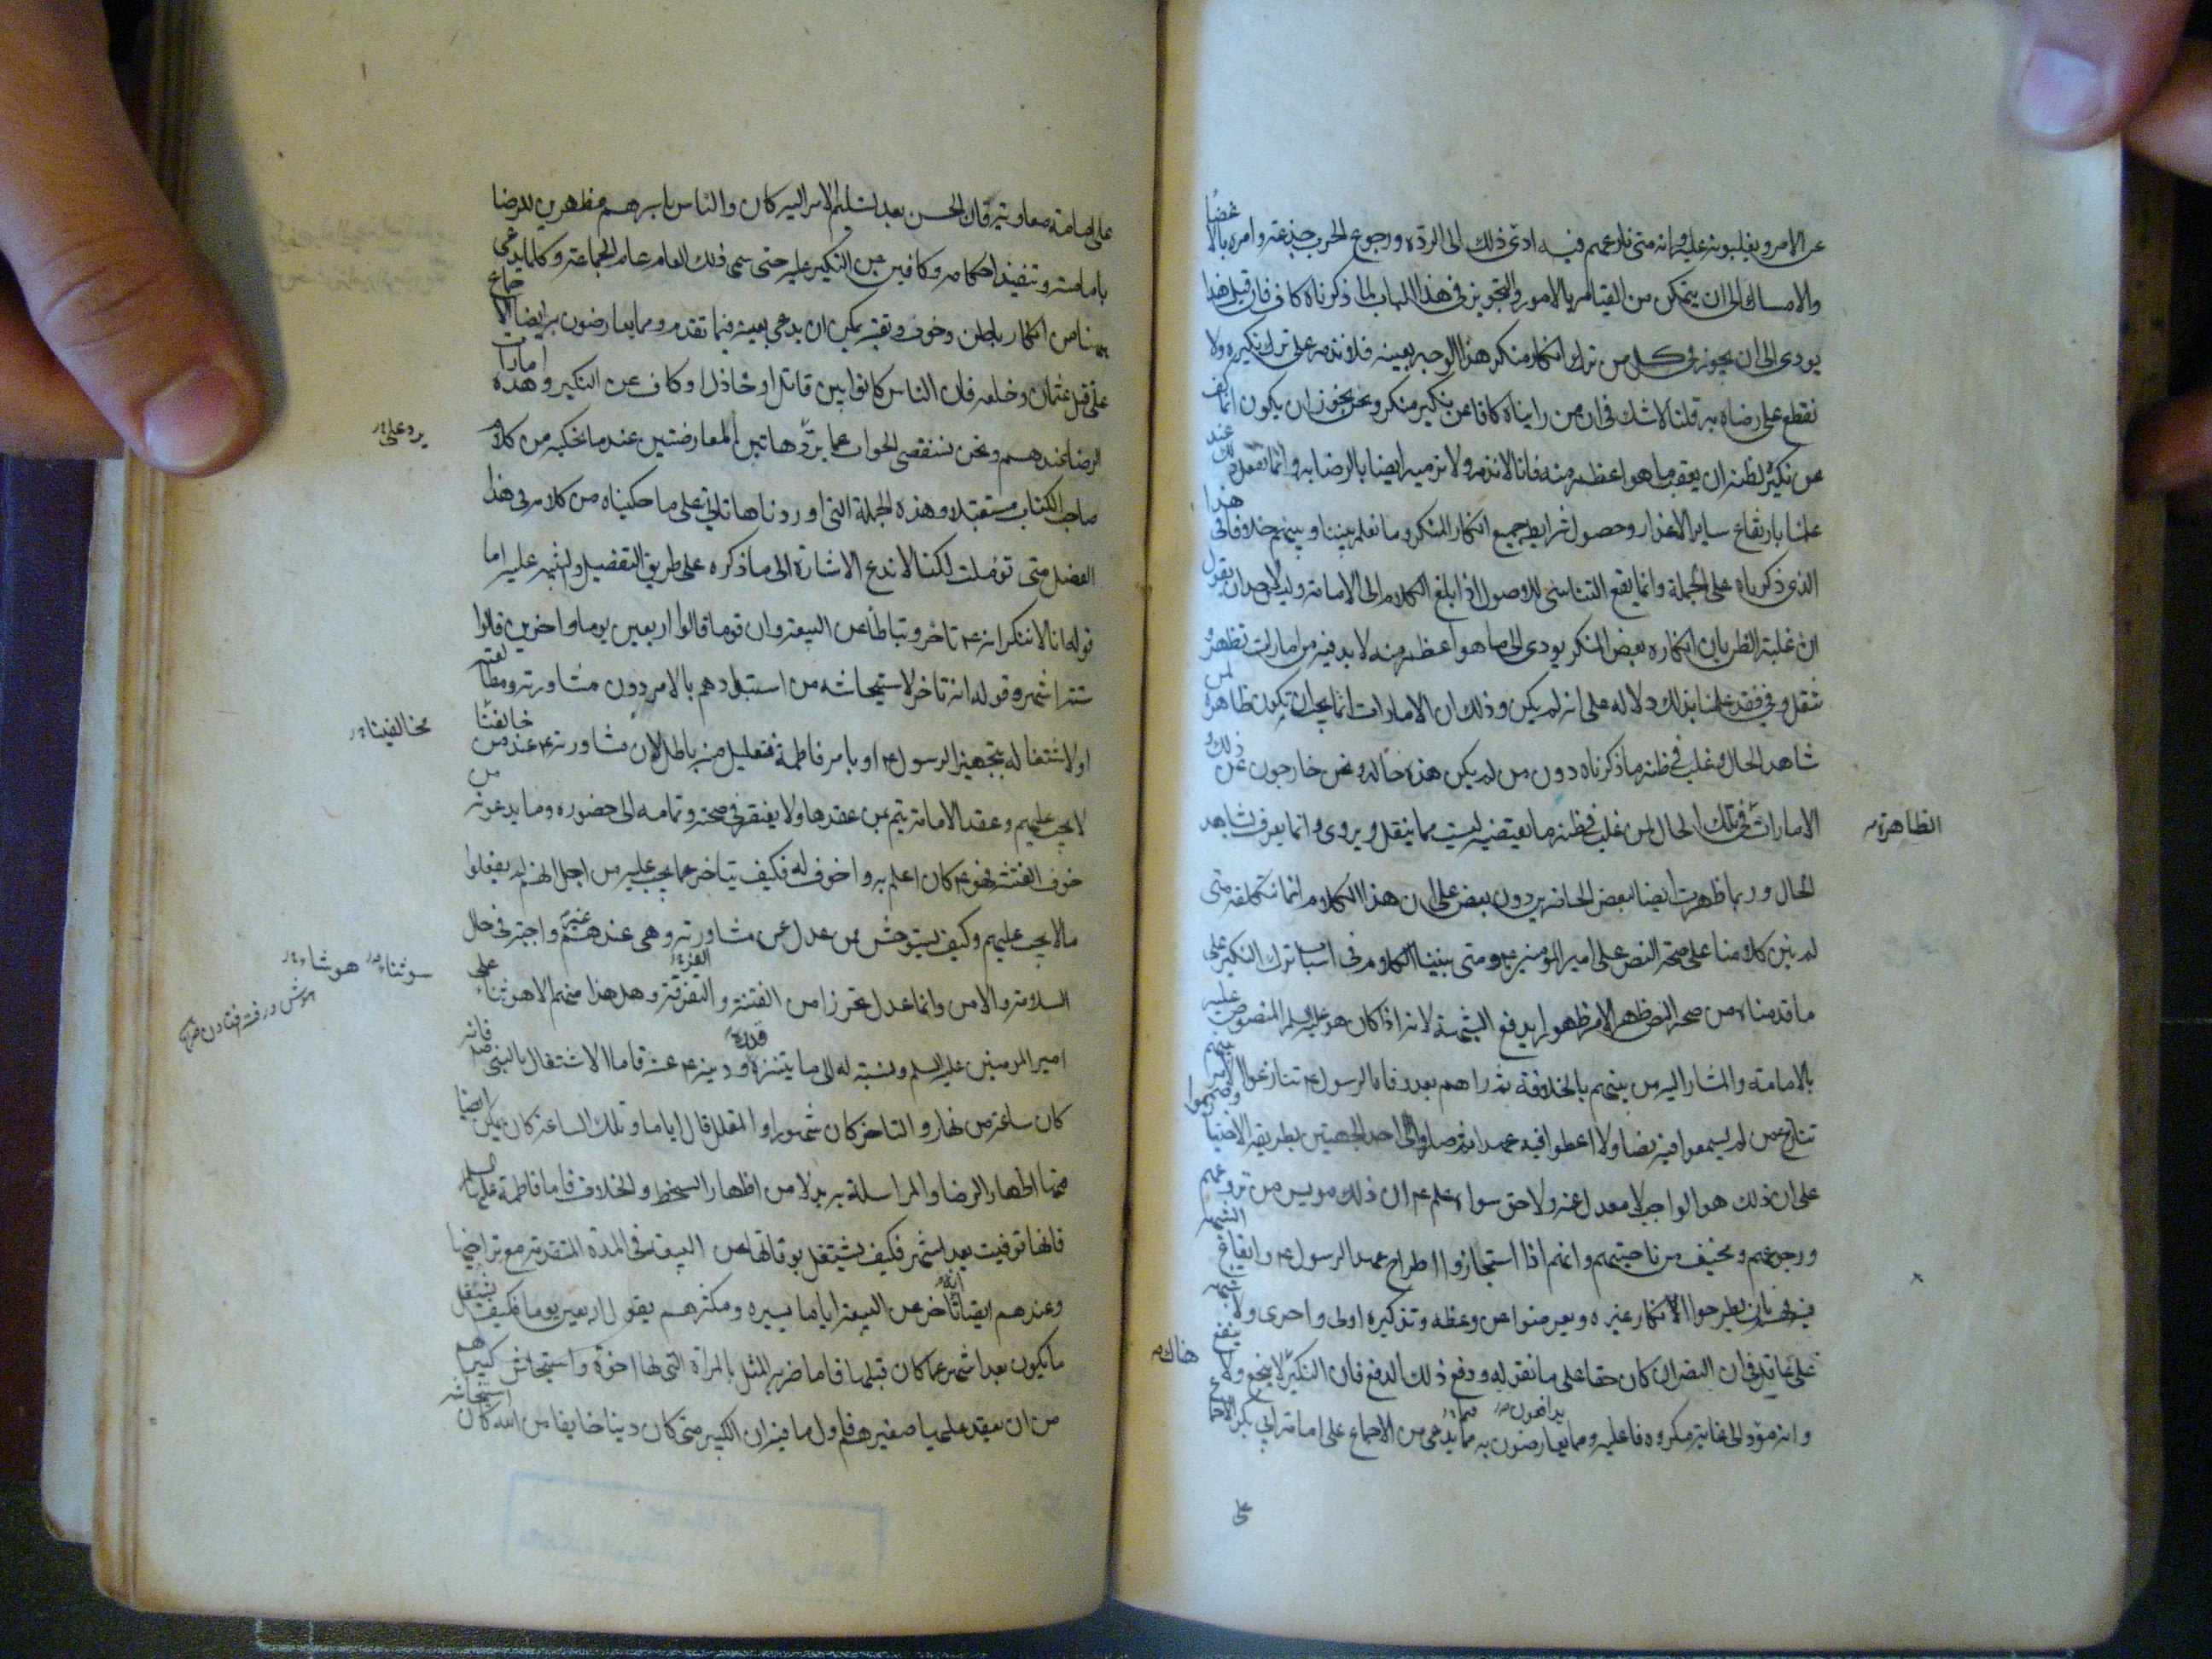 عن الامر ويغلبونه عليه وانه متى نازعهم فيه ادى ذلك الى الردة ورجوع الحرب جذعة وامره بالاغضا
والامساك الى ان يتمكن من القيام بالامور والتجويز في هذا الباب لما ذكرناه كاف فان قيل هذا
يودى الى ان يجوز في كل من ترك انكار منكر هذا الوجه بعينه فلا نذمه على ترك نكيره ولا
نقطع على رضاه به قلنا لا شك في ان من رايناه كافا عن نكير منكر ونحن نجوز ان يكون انما كف
عن نكيره لظنه ان يعقب ما هو اعظم منه فانا لا نذمه ولا نرميه ايضا بالرضا به وانما نفعل ذلك عند
علمنا بارتفاع ساير الاعذار وحصول شرايط جميع انكار المنكر وما نعلم بيننا وبينهم خلافا في هذا
الذي ذكرناه على الجملة وانما يقع التناسى للاصول اذا بلغ الكلام الى الامامة وليس لاحد ان يقول
ان غلبة الظن بان انكاره بعض المنكر يودى الى ما هو اعظم منه لا بد فيه من امارات تظهر و
تنقل وفي فقد علمنا بذلك دلالة على انه لم يكن وذلك ان الامارات انما يجب ان تكون ظاهرة لمن
شاهد الحال وغلب في ظنه ما ذكرناه دون من لم يكن هذه حاله ونحن خارجون عن ذلك و
الامارات في تلك الحال لمن غلب في ظنه ما يقتضيه ليست مما ينقل ويروى وانما يعرف بشاهد
الظاهرة
الحال وربما ظهرت ايضا لبعض الحاضرين دون بعض على ان هذا الكلام انما نتكلفه متى
لم نبن كلامنا على صحة النص على امير المؤمنين ومتى بنينا الكلام في اسباب ترك النكير على
ما قدمناه من صحة النص ظهر الامر ظهورا يدفع الشبهة لانه اذا كان هو عليه السلم المنصوص عليه
بالامامة والمشار اليه من بينهم بالخلافة ثم راهم بعد وفاة الرسول تنازعوا الامر بينهم
تنازع من لم يسمعوا فيه نصا ولا اعطوا فيه عهدا ثم صاروا الى احد الجهتين بطريقة الاختيا وصمموا
على ان ذلك هو الواجب لا معدل عنه ولا حق سواه علم ان ذلك مويس من نزوعهم
ورجوعهم ومخيف من ناحيتهم وانهم اذا استجازوا اطراح عهد الرسول وايقاع الشبهة
فيه فهم بان يطرحوا انكار غيره ويعرضوا عن وعظه وتذكيره اولى واحرى ولا شبهة
على عاقل في ان النص ان كان حقا على ما نقوله ودفع ذلك الدفع فان النكير لا ينجع ولا ينفع
هناك
وانه مؤد الى غاية مكروه فاعليه ومما يعارضون به مما يدعى من الاجماع على امامة ابي بكر الاجماع
يدافعون
على
على امامة معاوية فان الحسن بعد تسليم الامر اليه كان والناس باسرهم مظهرين للرضا
بامامته وتنفيذ احكامه وكافين عن النكير عليه حتى سمى ذلك العام عام الجماعة وكلما يدعى
ههنا من انكار باطن وخوف وتقية يمكن ان يدعى بعينه فيما تقدم ومما يعارضون به ايضا الاجماع
على قتل عثمان وخلعه فان الناس كانوا بين قاتل او خاذل او كاف عن النكير وهذه امارات
الرضا عندهم ونحن نستقصى الجواب عما يرد هاتين المعارضتين عندما نحكيه من كلام
يرد على
صاحب الكتاب مستقبلا وهذه الجملة التي اوردناها تاتي على ما حكيناه من كلامه في هذا
الفصل متى تؤملت لكنا لا ندع الاشارة الى ما ذكره على طريق التفصيل والتنبيه عليه اما
قوله انا لا ننكر انه تاخر وتباطأ عن البيعة وان قوما قالوا اربعين يوما واخرين قالوا
ستة اشهر وقوله انه تاخر لاستيحاشه من استبدادهم بالامر دون مشاورته ومطالعته
او لاشتغاله بتجهيز الرسول او بامر فاطمة فتعليل منه باطل لان مشاورته عند من خالفنا
مخالفينا
لا يجب عليهم وعقد الامامة يتم بمن عقدها ولا يفتقر في صحته وتمامه الى حضوره وما يدعونه من
خوف الفتنة فهو كان اعلم به واخوف له فكيف يتاخر عما يجب عليه من اجل انهم لم يفعلوا
ما لا يجب عليهم وكيف يستوحش ممن عدل عن مشاورته وهي عندهم غير واجبة في حال
السلامة والامن وانما عدل تحرزا من الفتنة والتفرقة وهل هذا منهم الا سوء ثناء على
الفرقة
امير المؤمنين عليه السلم ونسبته له الى ما يتنزه قدره ودينه عنه فاما الاشتغال بالنبي صلى فانه
كان ساعة من نهار والتاخر كان شهورا والمقلل قال اياما وتلك الساعة كان يمكن ايضا
فيها اظهار الرضا والمراسلة به بدلا من اظهار السخط والخلاف فاما فاطمة عليها السلم
فانها توفيت بعد اشهر فكيف يشتغل بوفاتها عن البيعة في المدة المتقدمة مع تراخيها
وعندهم ايضا انه تاخر عن البيعة اياما يسيره ومكثرهم يقول اربعين يوما فكيف يشتغل
ما يكون بعد اشهر عما كان قبلها فاما ضربه المثل بالمراة التي لها اخوة واستيحاش كبيرهم
من ان يعقد عليها صغيرهم فاول ما فيه ان الكبير متى كان دينا خايفا من الله كان استيحاشه